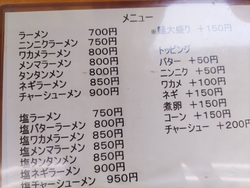 メニュー
ラーメン 700円
ニンニクラーメン 750円
ワカメラーメン 800円
メンマラーメン 800円
タンタンメン 800円
ネギラーメン 850円
チャーシューメン 900円
塩ラーメン 750円
塩バターラーメン 800円
塩ワカメラーメン 850円
塩メンマラーメン 850円
塩タンタンメン 850円
塩ネギラーメン 900円
塩チャーシューメン 950円
大盛り +150円
トッピング
バター +50円
ニンニク +50円
ワカメ +100円
ネギ +150円
煮卵 +100円
コーン +150円
チャーシュー +200円